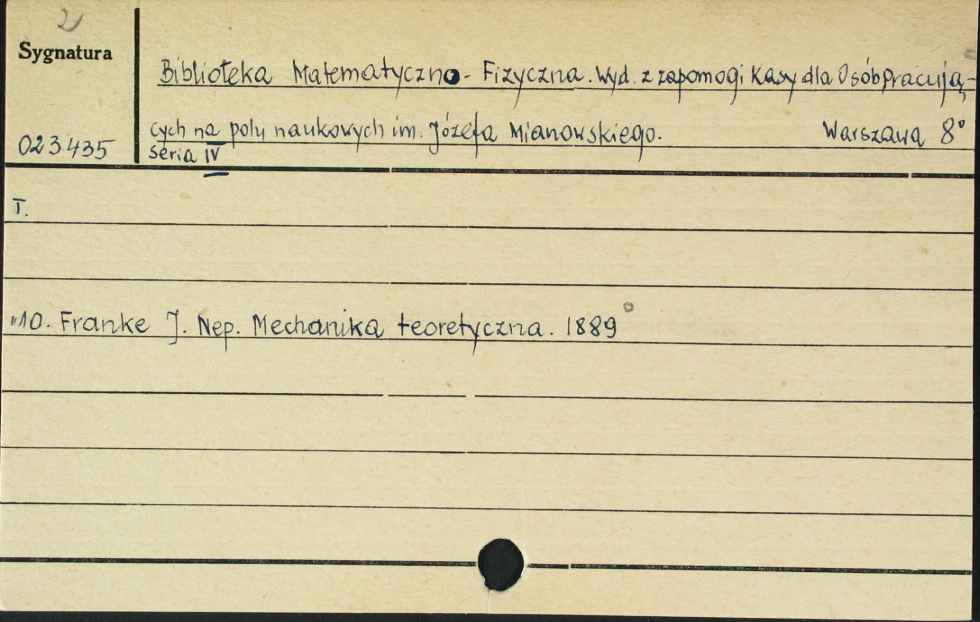 2
Sygnatura
Biblioteka Matematyczno - Fizyczna. Wyd. z zapomogi Kasy dla Osób Pracują-
023435
cych na polu naukowych im. Józefa Mianowskiego. Warszawa 8°
Seria IV
I.
"10. Franke J. Nep. Mechanika teoretyczna. 1889